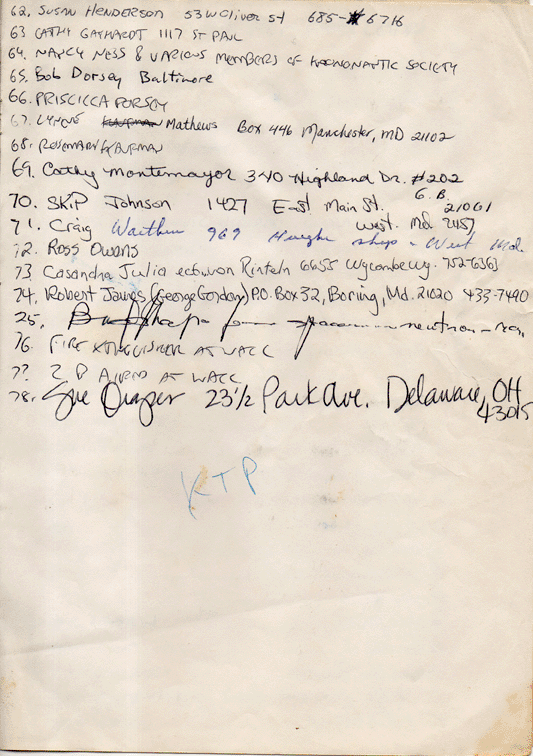 62. SUSAN HENDERSON 53 W Oliver St 685-6716
63 CATHY GATHARDT 1117 ST PAUL
64. NANCY NESS & VARIOUS MEMBERS OF SOCIETY
65. Bob Dorsey Baltimore
66. PRISCILLA DORSEY
67. LYNNE KAUFMAN Mathews Box 446 Manchester, MD 21102
68. ROSEMARY KAUFMAN
69. Cathy Montemayor 340 Highland Dr. #202
G.B. 21061
70. SKIP Johnson 1427 East Main St.
West. Md. 21157
71. Craig 969 ships - West Md.
72. Ross Owens
73 Casandra Julia von Rinteln 6655 Wycombe Wy. 752-6363
74. Robert James (George Gordon) P.O. Box 32, Boring, Md. 21020 433-7490
75.
76. FIRE EXTINGUISHER AT WACC
77 AT WACC
78. Sue Draper 23½ Park Ave. Delaware, OH
43015
KTP